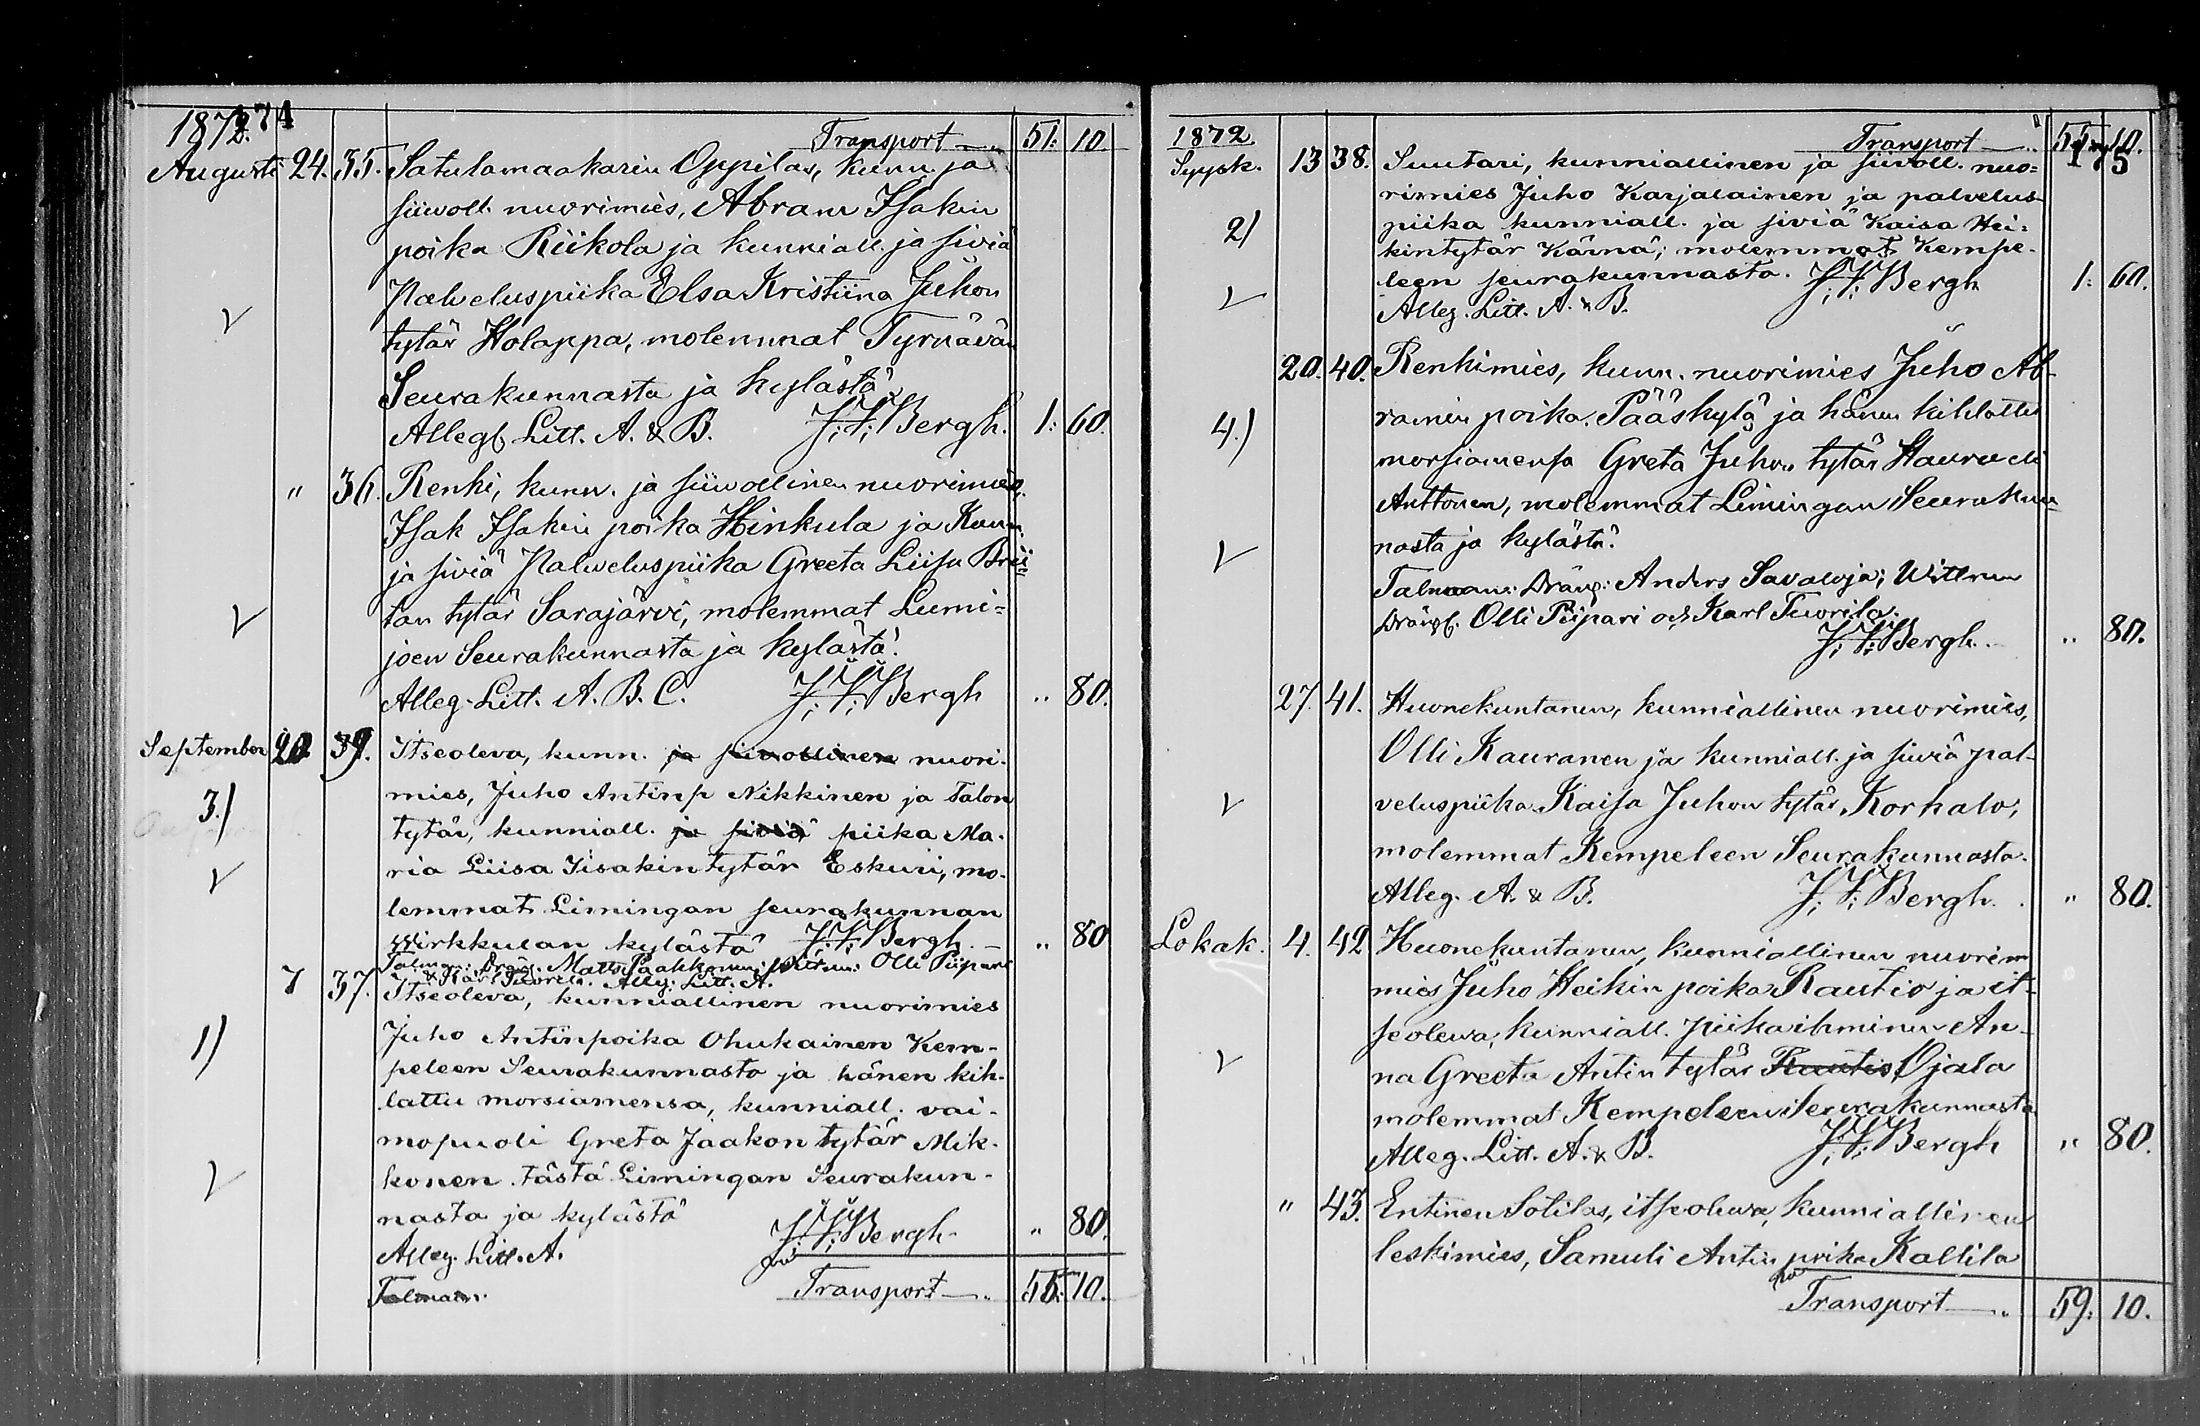 1872. 174
Transport — „ 51: 10.
Augusti 24. 35. Satulamaakarin Oppilas, kunn. ja
siiwoll. nuorimies, Abram Isakin
poika Riikola ja kunniall. ja siviä
Palveluspiika Elsa Kristiina Juhon
tytär Holappa, molemmat Tyrnävän
Seurakunnasta ja kylästä.
Alleg. Litt. A. & B. J. F. Bergh. 1: 60.
„ 36. Renki, kunn. ja siiwollinen nuorimies,
Isak Isakin poika Hinkula ja Kunn.
ja siviä Palweluspiika Greeta Liisa Brii=
tan tytär Sarajärvi, molemmat Lumi=
joen Seurakunnasta ja kylästä.
Alleg. Litt. A. B. C. J. F. Bergh „ 80.
September 20 39. Itseoleva, kunn. ja siivollinen nuori-
mies, Juho Antinp Nikkinen ja talon
3.)
tytär, kunniall. ja siviä piika Ma-
ria Liisa Iisakintytär Eskuri, mo-
lemmat Limingan seurakunnan
Wirkkulan kylästä J. F. Bergh. — „ 80
Talman: Dräng. Matts Paakkonen; Vittnen: Olli Piipari
& Karl Tuorila. Alleg. Litt. A.
7 37. Itseoleva, kunniallinen nuorimies
1)
Juho Antinpoika Ohukainen Kem-
peleen Seurakunnasta ja hänen kih-
lattu morsiamensa, kunniall. vai-
mopuoli Greta Jaakon tytär Mik-
konen tästä Limingan Seurakun-
nasta ja kylästä
J. F. Bergh. „ 80.
Alleg. Litt. A.
Talman.
Transport — „ 55: 10.
1872. Transport — „ 55: 10.
175
Syysk. 13 38. Suutari, kunniallinen ja siivoll. nuo=
rimies Juho Karjalainen ja palvelus-
2)
piika kunniall. ja siviä Kaisa Hei=
kintytär Kärnä; molemmat Kempe-
leen seurakunnasta. J. F. Bergh 1: 60.
Alleg. Litt. A. & B.
20. 40. Renkimies, kunn. nuorimies Juho Ab-
ramin poika Pääskylä ja hänen kihlattu
4.)
morsiamensa Greta Juhon tytär Haurudi
Anttonen, molemmat Limingan Seurakun=
nasta ja kylästä.
Talman: Dräng: Anders Savaloja; Wittnen
Dräng. Olli Piipari och Karl Tuorila.
J. F. Bergh. „ 80.
27. 41. Huonekuntanen, kunniallinen nuorimies,
Olli Kauranen ja kunniall. ja siviä pal-
veluspiika Kaisa Juhon tytär Korhalo,
molemmat Kempeleen Seurakunnasta.
Alleg. A. & B. J. F. Bergh. „ 80.
Lokak. 4. 42 Huonekuntanen, kunniallinen nuorim
mies Juho Heikin poika Rautio ja it-
seolewa, kunniall. piikaihminen An-
na Greeta Antin tytär Rautio Ojala
molemmat Kempeleen Seurakunnasta
Alleg. Litt. A. & B. J. F. Bergh „ 80.
„ 43. Entinen Sotilas, itseolewa, kunniallinen
leskimies, Samuli Antin poika Kallila
Transport — „ 59: 10.